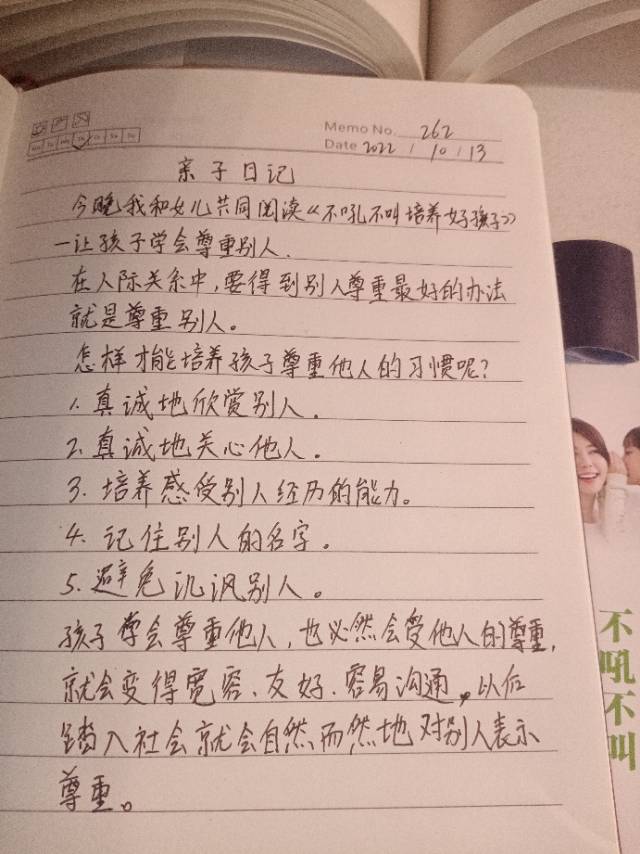 Memo No. 262
Date 2022 / 10 / 13
亲子日记
今晚我和女儿共同阅读《不吼不叫培养好孩子》
一让孩子学会尊重别人.
在人际关系中,要得到别人尊重最好的办法
就是尊重别人。
怎样才能培养孩子尊重他人的习惯呢?
1. 真诚地欣赏别人.
2. 真诚地关心他人.
3. 培养感受别人经历的能力。
4. 记住别人的名字。
5. 避免讥讽别人。
孩子学会尊重他人,也必然会受他人的尊重,
就会变得宽容、友好、容易沟通,以后
踏入社会就会自然而然地对别人表示
尊重。
不吼不叫